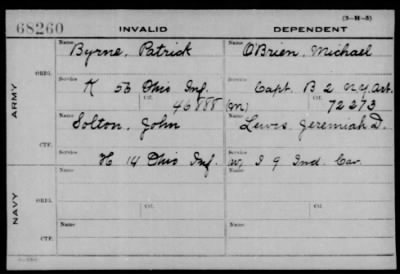 (3-H-5)
68260 INVALID DEPENDENT
Name Byrne, Patrick Name O'Brien, Michael
ORIG. Service K 53 Ohio Inf. Service Capt. B 2 N.Y. Art.
Ctf. 46888 (M) Ctf. 72273
ARMY
Name Solton, John Name Lewis, Jeremiah D.
CTF. Service H 14 Ohio Inf. Service W, I 9 Ind. Cav.
NAVY
ORIG. Name Ctf. Name Ctf.
CTF. Name Name